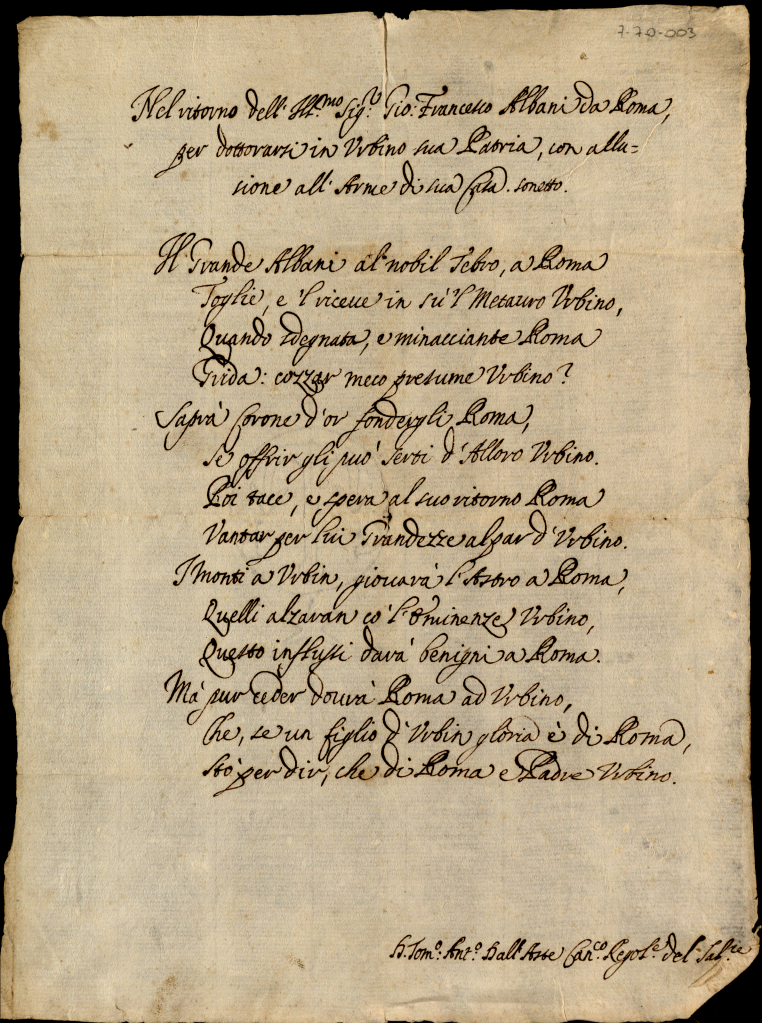 7-70-003
Nel ritorno dell' Ill.mo Sig.r Gio: Francesco Albani da Roma,
per dottorarsi in Vrbino sua Patria, con allu=
sione all' Arme di sua Casa. sonetto.
Il Grande Albani al nobil Tebro, a Roma
Toglie, e 'l riceue in sù 'l Metauro Vrbino,
Quando sdegnata, e minacciante Roma
Grida: cozzar meco presume Vrbino?
Saprà Corone d'or fondergli Roma,
se offrir gli può serti d'Alloro Vrbino.
Poi tace, e spera al suo ritorno Roma
Vantar per lui Grandezze al par d'Vrbino.
I Monti a Vrbin, giouarà l'Astro a Roma,
Quelli alzaran co' l'Eminenze Vrbino,
Questo influssi darà benigni a Roma.
Mà pur ceder dourà Roma ad Vrbino,
Che, se un figlio d'Vrbin gloria è di Roma,
stò per dir, che di Roma e Padre Vrbino.
Ant.o Can.co Regol.e del